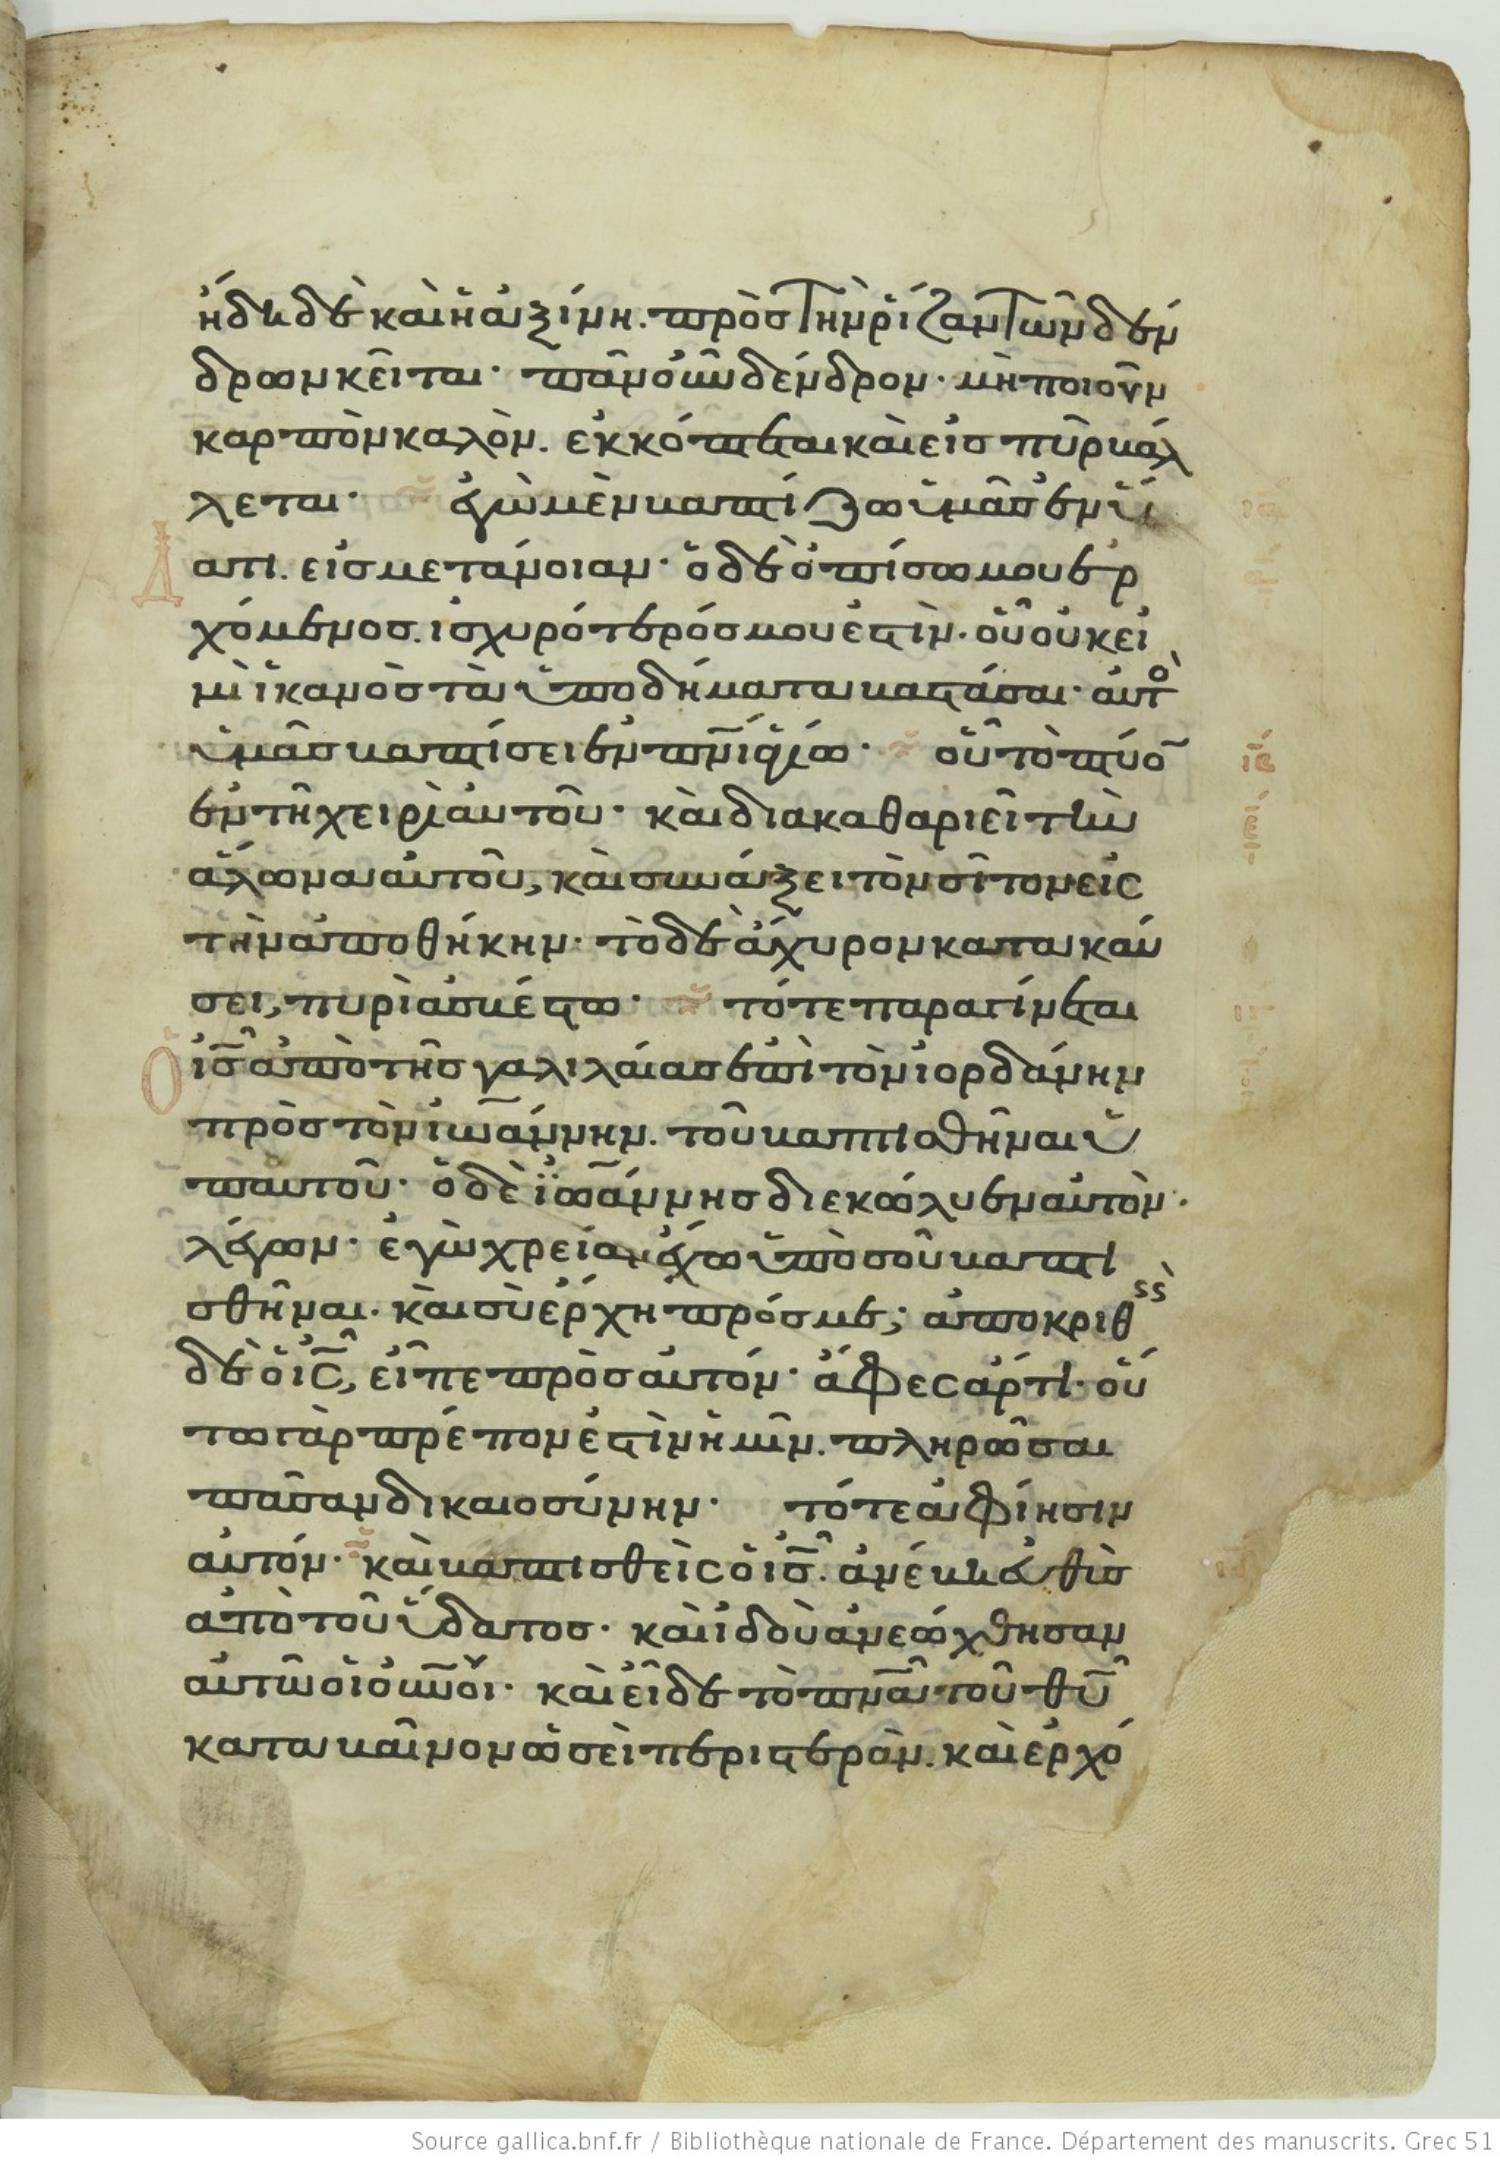 ἤδη δὲ καὶ ἡ ἀξίνη. πρὸς τὴν ῥίζαν τῶν δέν
δρων κεῖται· πᾶν οὖν δένδρον· μὴ ποιοῦν
καρπὸν καλὸν. ἐκκόπτεται καὶ εἰς πῦρ βάλ
λεται· ἐγὼ μὲν βαπτίζω ὑμᾶς ἐν ὕδ
ατι. εἰς μετάνοιαν· ὁ δὲ ὀπίσω μου ἐρ
χόμενος. ἰσχυρότερός μου ἐστὶν· οὗ οὐκ εἰ
μὶ ἱκανὸς τὰ ὑποδήματα βαστάσαι· αὐτὸ
ὑμᾶς βαπτίσει ἐν πνι ἁγίω· οὗ τὸ πτύο
ἐν τῆ χειρὶ αὐτοῦ· καὶ διακαθαριεῖ τὴν
ἅλωνα αὐτοῦ, καὶ συνάξει τὸν σῖτον εἰς
τὴν ἀποθήκην· τὸ δὲ ἄχυρον κατακαύ
σει, πυρὶ ἀσβέστω· τότε παραγίνεται
ὁ ις ἀπὸ τῆς γαλιλαίας ἐπὶ τὸν ἰορδάνην
πρὸς τὸν ἰωάννην. τοῦ βαπτισθῆναι ὑ
π αὐτοῦ· ὁ δὲ ϊωάννης διεκώλυεν αὐτὸν·
λέγων· ἐγὼ χρείαν ἔχω ὑπὸ σοῦ βαπτι
σθῆναι· καὶ σὺ ἔρχη πρός με; ἀποκριθεὶς
δὲ ὁ ις, εἶπε πρὸς αὐτόν· ἄφες ἄρτι· οὕ
τω γὰρ πρέπον ἐστὶν ἡμῖν. πληρῶσαι
πᾶσαν δικαιοσύνην· τότε ἀφίησιν
αὐτόν· καὶ βαπτισθεὶς ὁ ις. ἀνέβη εὐθὺς
ἀπὸ τοῦ ὕδατος· καὶ ἰδοὺ ἀνεώχθησαν
αὐτῶ οἱ οὐνοι· καὶ εἶδε τὸ πνα τοῦ θυ
καταβαῖνον ὡσεὶ περιστερὰν. καὶ ἐρχό
Source gallica.bnf.fr / Bibliothèque nationale de France. Département des manuscrits. Grec 51